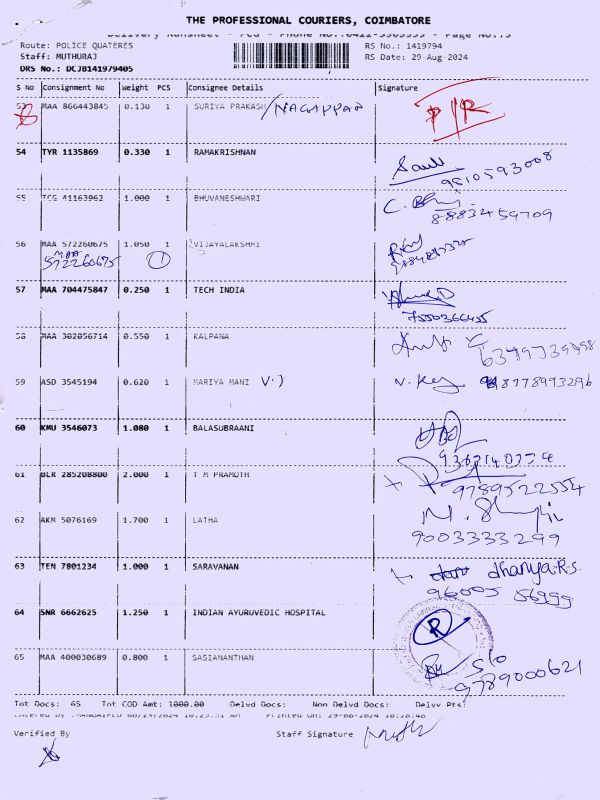 THE PROFESSIONAL COURIERS, COIMBATORE
Delivery Runsheet - Pcd - Phone No.:0422-3505555 - Page No.:5
Route: POLICE QUATERES RS No.: 1419794
Staff: MUTHURAJ RS Date: 29-Aug-2024
DRS No.: DCJB141979405
S No Consignment No Weight PCS Consignee Details Signature
53 MAA 866443845 0.130 1 SURIYA PRAKASH /NAGAPPAN P/R
54 TYR 1135869 0.330 1 RAMAKRISHNAN
9810593008
55 TCG 41163962 1.000 1 BHUVANESHWARI
8883459709
56 MAA 572260675 1.050 1 VIJAYALAKSHMI
MAA
572260675 1
57 MAA 704475847 0.250 1 TECH INDIA
7550366455
58 MAA 302056714 0.550 1 KALPANA
59 ASD 3545194 0.620 1 MARIYA MANI V.J 8778993296
60 KMU 3546073 1.080 1 BALASUBRAANI
61 BLR 285208800 2.000 1 T M PRAMOTH
9789522554
62 AKM 5076169 1.700 1 LATHA
9003333299
63 TEN 7801234 1.000 1 SARAVANAN dhanya.R.S
64 SNR 6662625 1.250 1 INDIAN AYURUVEDIC HOSPITAL
R
65 MAA 400030689 0.800 1 SASIANANTHAN S/o
9789000621
Tot Docs: 65 Tot COD Amt: 1000.00 Delvd Docs: Non Delvd Docs: Delvy Pts:
08/29/2024 10:25:51 AM Printed On: 29-08-2024 10:26:48
Verified By Staff Signature